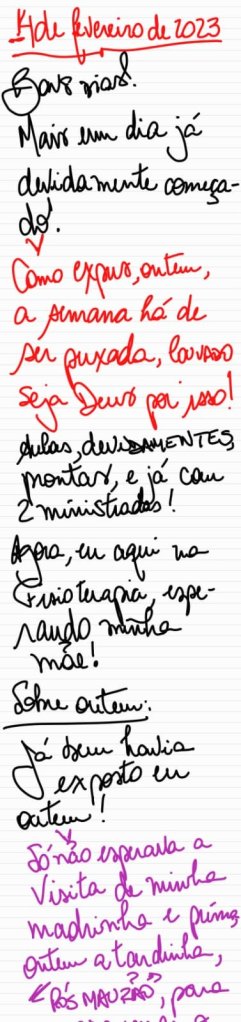 14 de fevereiro de 2023
Bons dias!
Mais um dia já
devidamente começa-
do!
Como expus, ontem,
a semana há de
ser puxada, louvado
seja Deus por isso!
Aulas, deviDAMENTES,
prontas, e já com
2 ministradas!
Agora, eu aqui na
Fisioterapia, espe-
rando minha
mãe!
Sobre ontem:
Já bem havia
exposto eu
ontem!
Só não esperava a
visita de minha
madrinha e prima,
ontem a tardinha,
"PÓS MAUZÃO", para